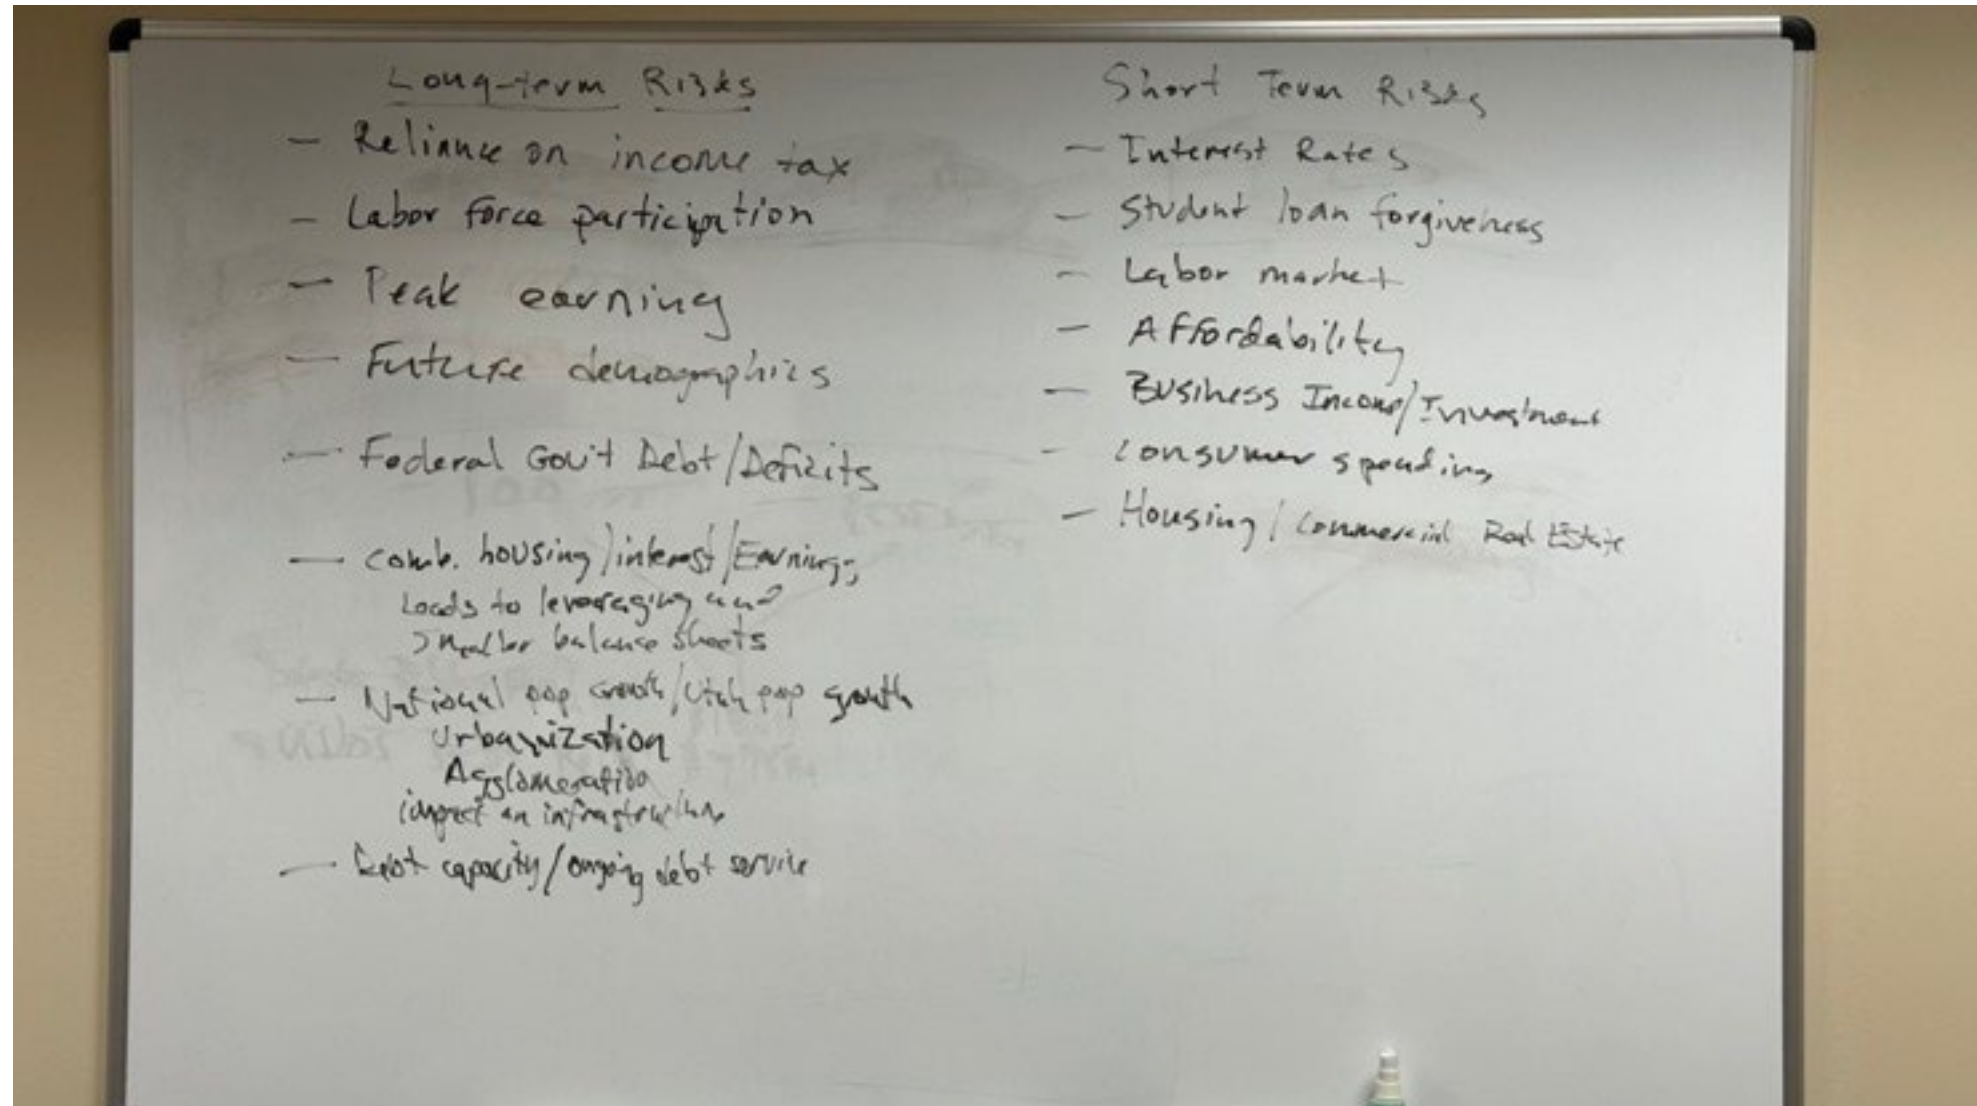 Long-term Risks
- Reliance on income tax
- Labor force participation
- Peak earning
- Future demographics
- Federal Gov't Debt/Deficits
- Comb. housing/interest/Earnings
Leads to leveraging and
smaller balance sheets
- National pop growth/Utah pop growth
Urbanization
Agglomeration
impact on infrastructure
- Debt capacity/ongoing debt service
Short Term Risks
- Interest Rates
- Student loan forgiveness
- Labor market
- Affordability
- Business Income/Investment
- Consumer spending
- Housing/Commercial Real Estate